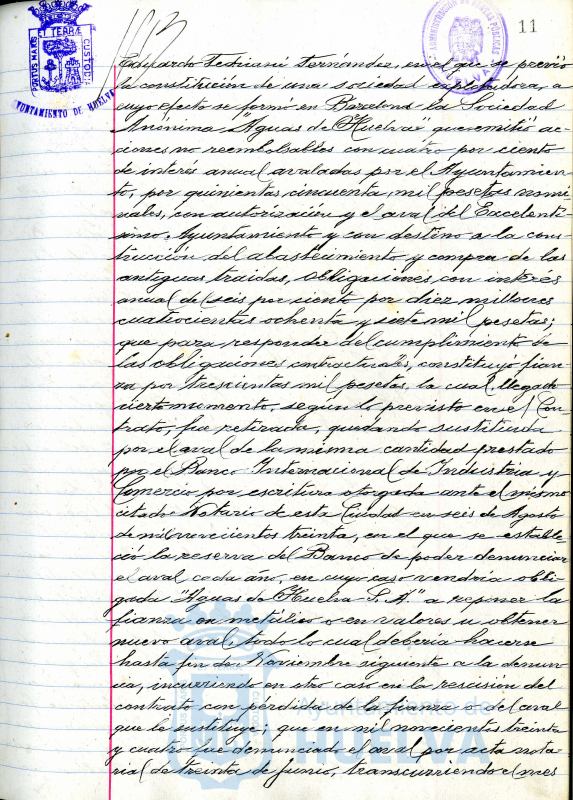 11
PORTUS MARIS ET TERRÆ CUSTODIA
AYUNTAMIENTO DE HUELVA
ADMINISTRACIÓN DE RENTAS PÚBLICAS
HUELVA
Eduardo Fedriani Fernández, en el que se previó
la constitución de una sociedad explotadora, a
cuyo efecto se formó en Barcelona la Sociedad
Anónima "Aguas de Huelva" que emitió ac-
ciones no reembolsables con cuatro por ciento
de interés anual avaladas por el Ayuntamien-
to, por quinientas cincuenta mil pesetas nomi-
nales, con autorización y el aval del Excelentí-
simo Ayuntamiento y con destino a la cons-
trucción del abastecimiento y compra de las
antiguas traidas, obligaciones con interés
anual de seis por ciento por diez millones
cuatrocientas ochenta y siete mil pesetas;
que para responder del cumplimiento de
las obligaciones contractuales, constituyó fian-
za por trescientas mil pesetas la cual, llegado
cierto momento, según lo previsto en el Con-
trato, fue retirada, quedando sustituida
por el aval de la misma cantidad prestado
por el Banco Internacional de Industria y
Comercio por escritura otorgada ante el mismo
citado Notario de esta Ciudad en seis de Agosto
de mil novecientos treinta, en el que se estable-
ció la reserva del Banco de poder denunciar
el aval cada año, en cuyo caso vendria obli-
gada "Aguas de Huelva S.A." a reponer la
fianza en metálico o en valores u obtener
nuevo aval, todo lo cual deberia hacerse
hasta fin de Noviembre siguiente a la denun-
cia, incurriendo en otro caso en la rescisión del
contrato con pérdida de la fianza o del aval
que le sustituye; que en mil novecientos treinta
y cuatro fue denunciado el aval por acta nota-
rial de treinta de Junio, transcurriendo el mes
Ayuntamiento de
HUELVA